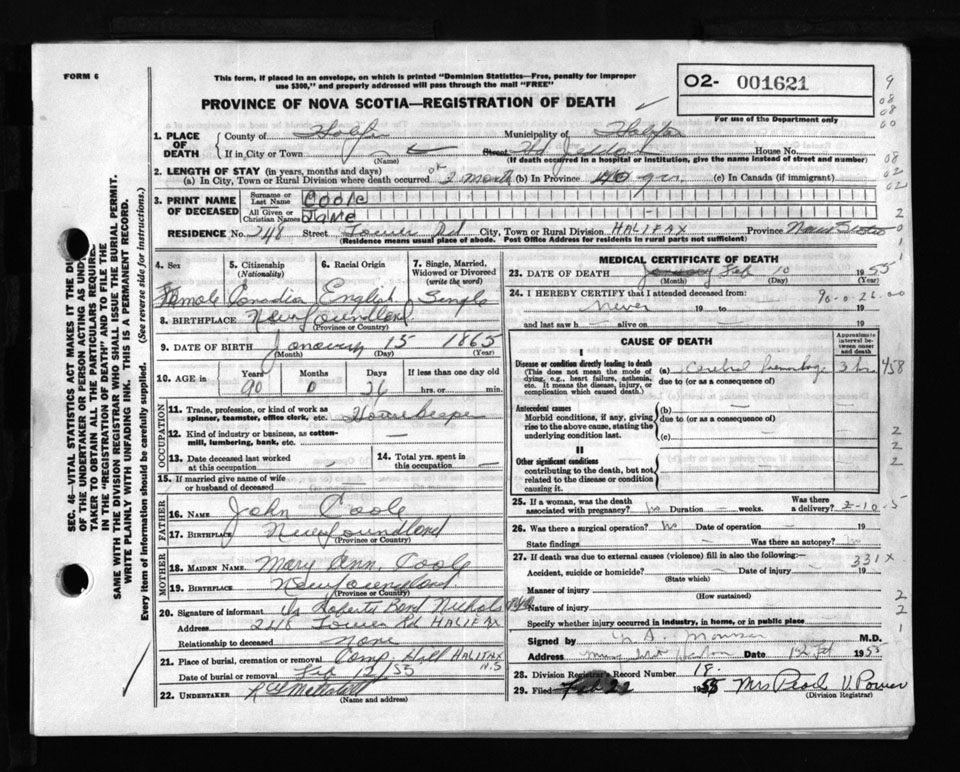 FORM 6
This form, if placed in an envelope, on which is printed "Dominion Statistics—Free, penalty for improper
use $300," and properly addressed will pass through the mail "FREE"
O2- 001621
For use of the Department only
PROVINCE OF NOVA SCOTIA—REGISTRATION OF DEATH
1. PLACE OF DEATH
County of Municipality of Halifax
If in City or Town (Name) Street House No.
(If death occurred in a hospital or institution, give the name instead of street and number)
2. LENGTH OF STAY (in years, months and days)
(a) In City, Town or Rural Division where death occurred 2 months (b) In Province 40 yrs. (c) In Canada (if immigrant)
3. PRINT NAME OF DECEASED
Surname or Last Name Coole
All Given or Christian Names Jane
RESIDENCE No. 248 Street Tower Rd City, Town or Rural Division HALIFAX Province Nova Scotia
(Residence means usual place of abode. Post Office Address for residents in rural parts not sufficient)
4. Sex Female
5. Citizenship (Nationality) Canadian
6. Racial Origin English
7. Single, Married, Widowed or Divorced (write the word) Single
8. BIRTHPLACE Newfoundland
(Province or Country)
9. DATE OF BIRTH January 15 1865
(Month) (Day) (Year)
10. AGE in Years Months Days If less than one day old
90 0 26 hrs. or min.
OCCUPATION
11. Trade, profession, or kind of work as
spinner, teamster, office clerk, etc.
12. Kind of industry or business, as cotton-
mill, lumbering, bank, etc. —
13. Date deceased last worked
at this occupation —
14. Total yrs. spent in
this occupation —
15. If married give name of wife
or husband of deceased —
FATHER
16. NAME John Coole
17. BIRTHPLACE Newfoundland
(Province or Country)
MOTHER
18. MAIDEN NAME Mary Ann. Coole
19. BIRTHPLACE Newfoundland
(Province or Country)
20. Signature of informant Roberta Bond Nichols
Address 248 Tower Rd HALIFAX
Relationship to deceased none
21. Place of burial, cremation or removal Camp Hill HALIFAX N.S
Date of burial or removal Feb 12/55
22. UNDERTAKER
(Name and address)
MEDICAL CERTIFICATE OF DEATH
23. DATE OF DEATH January Feb 10 1955
(Month) (Day)
24. I HEREBY CERTIFY that I attended deceased from: 90-0-26-00
never 19 to 19
and last saw h alive on 19
CAUSE OF DEATH
Approximate interval between onset and death
I
Disease or condition directly leading to death
(This does not mean the mode of
dying, e.g., heart failure, asthenia,
etc. It means the disease, injury, or
complication which caused death.)
(a) Cerebral hemorrhage 2 hrs 458
due to (or as a consequence of)
Antecedent causes
Morbid conditions, if any, giving
rise to the above cause, stating the
underlying condition last.
(b) —
due to (or as a consequence of)
(c) —
II
Other significant conditions
contributing to the death, but not
related to the disease or condition
causing it.
25. If a woman, was the death
associated with pregnancy? no Duration — weeks. Was there a delivery? 2-10-5
26. Was there a surgical operation? No Date of operation — 19
State findings — Was there an autopsy?
27. If death was due to external causes (violence) fill in also the following:—
331X
Accident, suicide or homicide? — Date of injury — 19
(State which)
Manner of injury
(How sustained)
Nature of injury
Specify whether injury occurred in industry, in home, or in public place
Signed by M.D.
Address Date 12 Feb 1955
28. Division Registrar's Record Number 18.
29. Filed Feb 22 1955 Mrs Pearl V. Power
(Division Registrar)
SEC. 46—VITAL STATISTICS ACT MAKES IT THE DU
OF THE UNDERTAKER OR PERSON ACTING AS UND
TAKER TO OBTAIN ALL THE PARTICULARS REQUIRE
IN THE "REGISTRATION OF DEATH" AND TO FILE THE
SAME WITH THE DIVISION REGISTRAR WHO SHALL ISSUE THE BURIAL PERMIT.
WRITE PLAINLY WITH UNFADING INK. THIS IS A PERMANENT RECORD.
Every item of information should be carefully supplied. (See reverse side for instructions.)